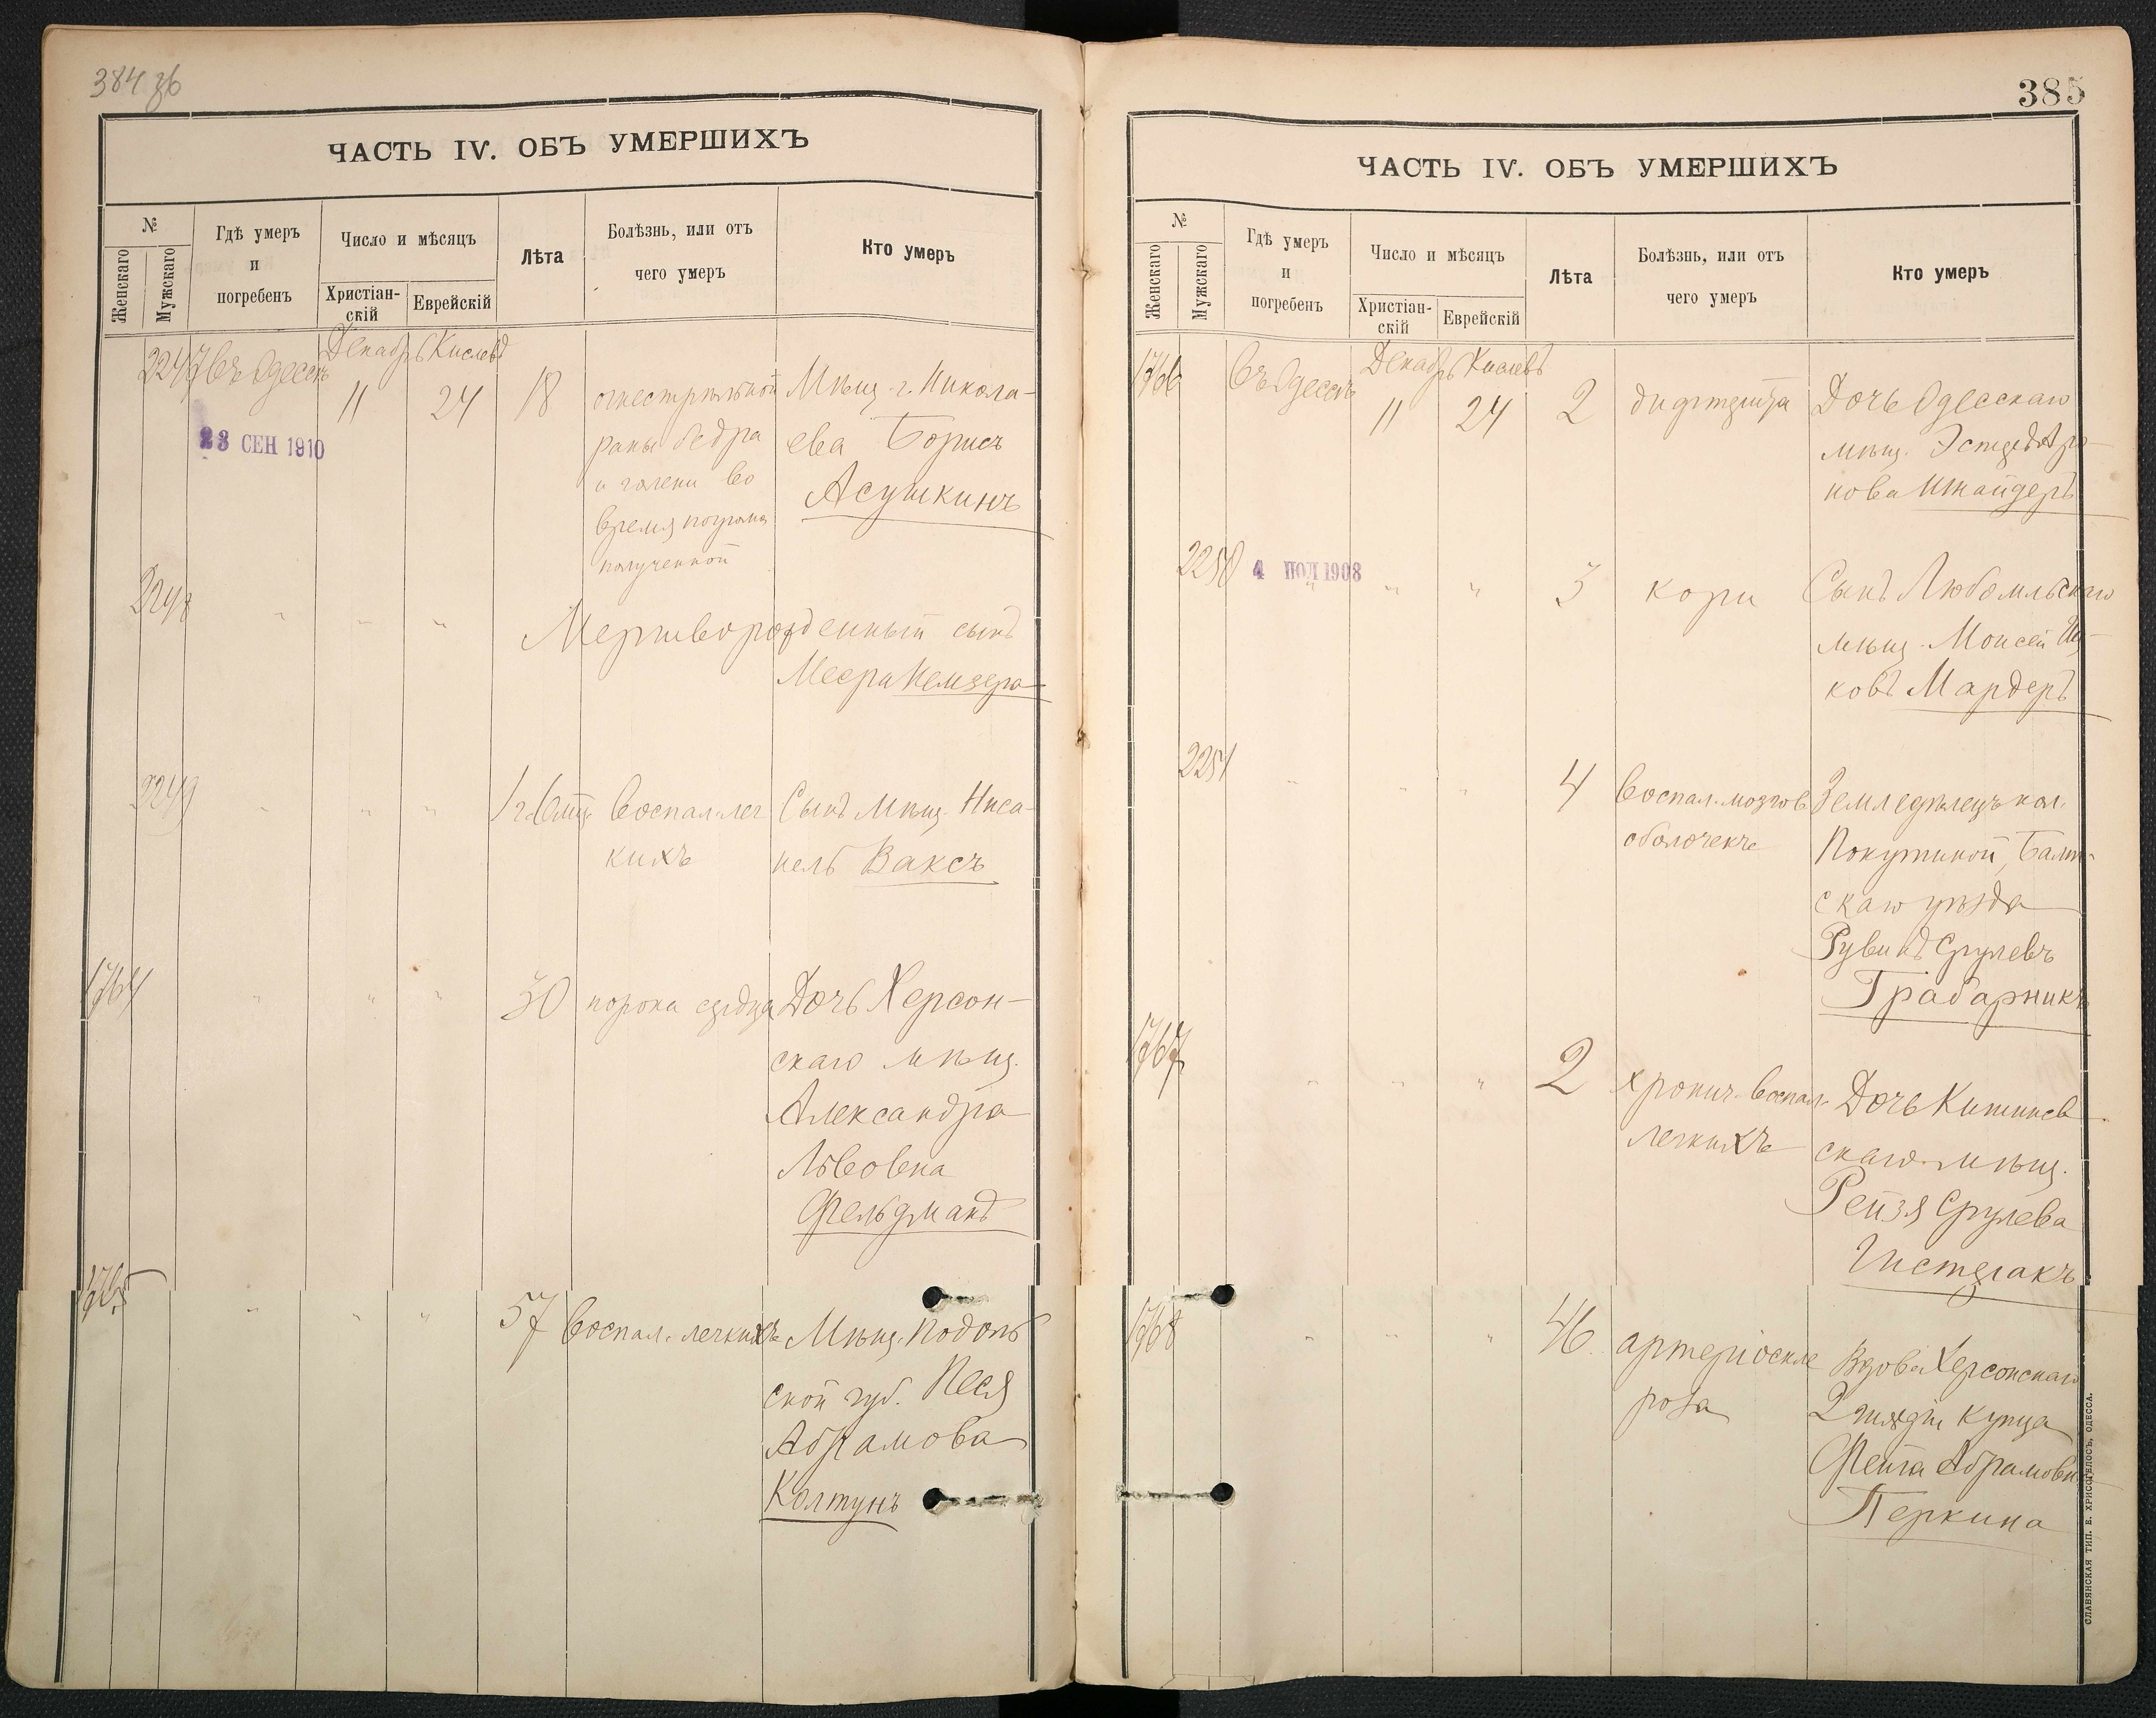 384 об
ЧАСТЬ IV. ОБЪ УМЕРШИХЪ
№
Женскаго
Мужскаго
Гдѣ умеръ
и
погребенъ
Число и мѣсяцъ
Христіан-
скій
Еврейскій
Лѣта
Болѣзнь, или отъ
чего умеръ
Кто умеръ
2247 въ Одессѣ
Декабрь Кислевъ
11 24 18
23 СЕН 1910
огнестрѣльной
раны бедра
и голени во
время погрома
полученной
Мѣщ. г. Никола-
ева Борисъ
Асушкинъ
2248 " " "
Мертворожденный сынъ
Меера Кемзера
2249 " " " 1 г. 6 мѣс.
Воспал. лег
кихъ
Сынъ мѣщ. Ниса-
нель Ваксъ
1764 " " " 30
порока сердца
Дочь Херсон-
скаго мѣщ.
Александра
Львовна
Фельдманъ
1765 " " " 57
Воспал. легкихъ
Мѣщ. Подоль
ской губ. Песя
Абрамова
Колтунъ
385
ЧАСТЬ IV. ОБЪ УМЕРШИХЪ
№
Женскаго
Мужскаго
Гдѣ умеръ
и
погребенъ
Число и мѣсяцъ
Христіан-
скій
Еврейскій
Лѣта
Болѣзнь, или отъ
чего умеръ
Кто умеръ
1766 Въ Одессѣ
Декабрь Кислевъ
11 24 2
дифтерита
Дочь Одесскаго
мѣщ. Эстеръ Аро-
нова Шнайдеръ
2250 " " " 3
4 1908
кори
Сынъ Любомльскаго
мѣщ. Моисей Иц-
ковъ Мардеръ
2251 " " " 4
Воспал. мозгов.
оболочекъ
Земледѣлецъ кол.
Покутиной, Балт-
скаго уѣзда
Рувинъ Срулевъ
Грабарникъ
1767 " " " 2
хронич. воспал.
легкихъ
Дочь Кишинев
скаго мѣщ.
Рейзя Срулева
1768 " " " 46
артеріоскле
роза
Вдова Херсонскаго
2 гильдіи купца
Фейга Абрамовн
Перкина
СЛАВЯНСКАЯ ТИП. Е. ХРИСОГЕЛОСЪ, ОДЕССА.